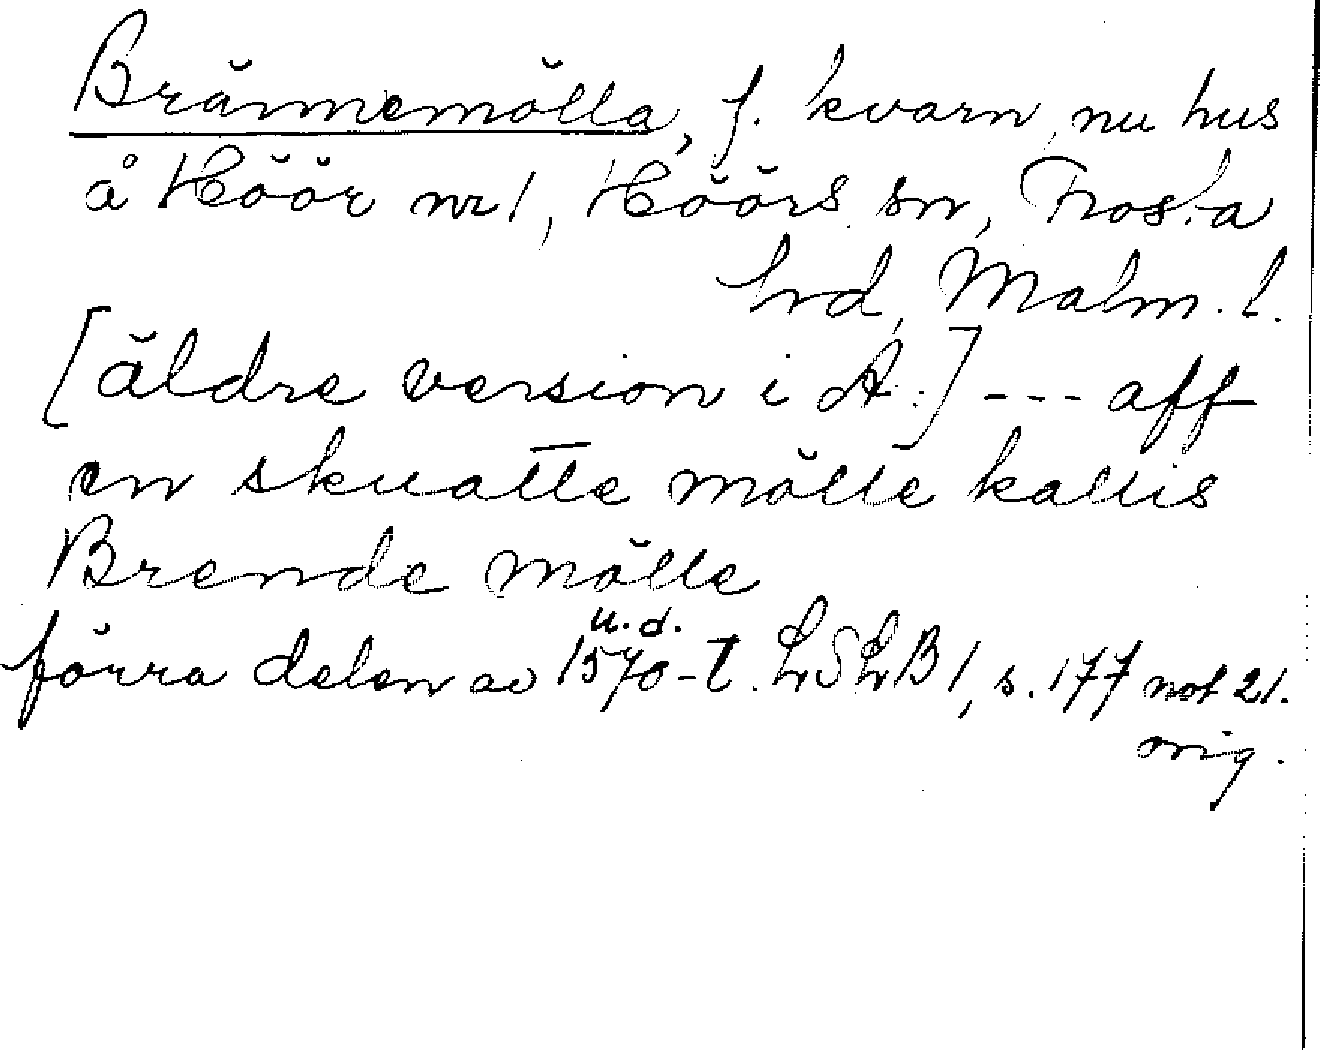 Brännemölla, f. kvarn, nu hus
å Höör nr 1, Höörs sn, Frosta
hrd, Malm. l.
[äldre version i A:] --- aff
en skuatte mölle kallis
Brende mölle
u.d.
förra delen av 1570-t. LSLB 1, s. 177 not 21.
orig.